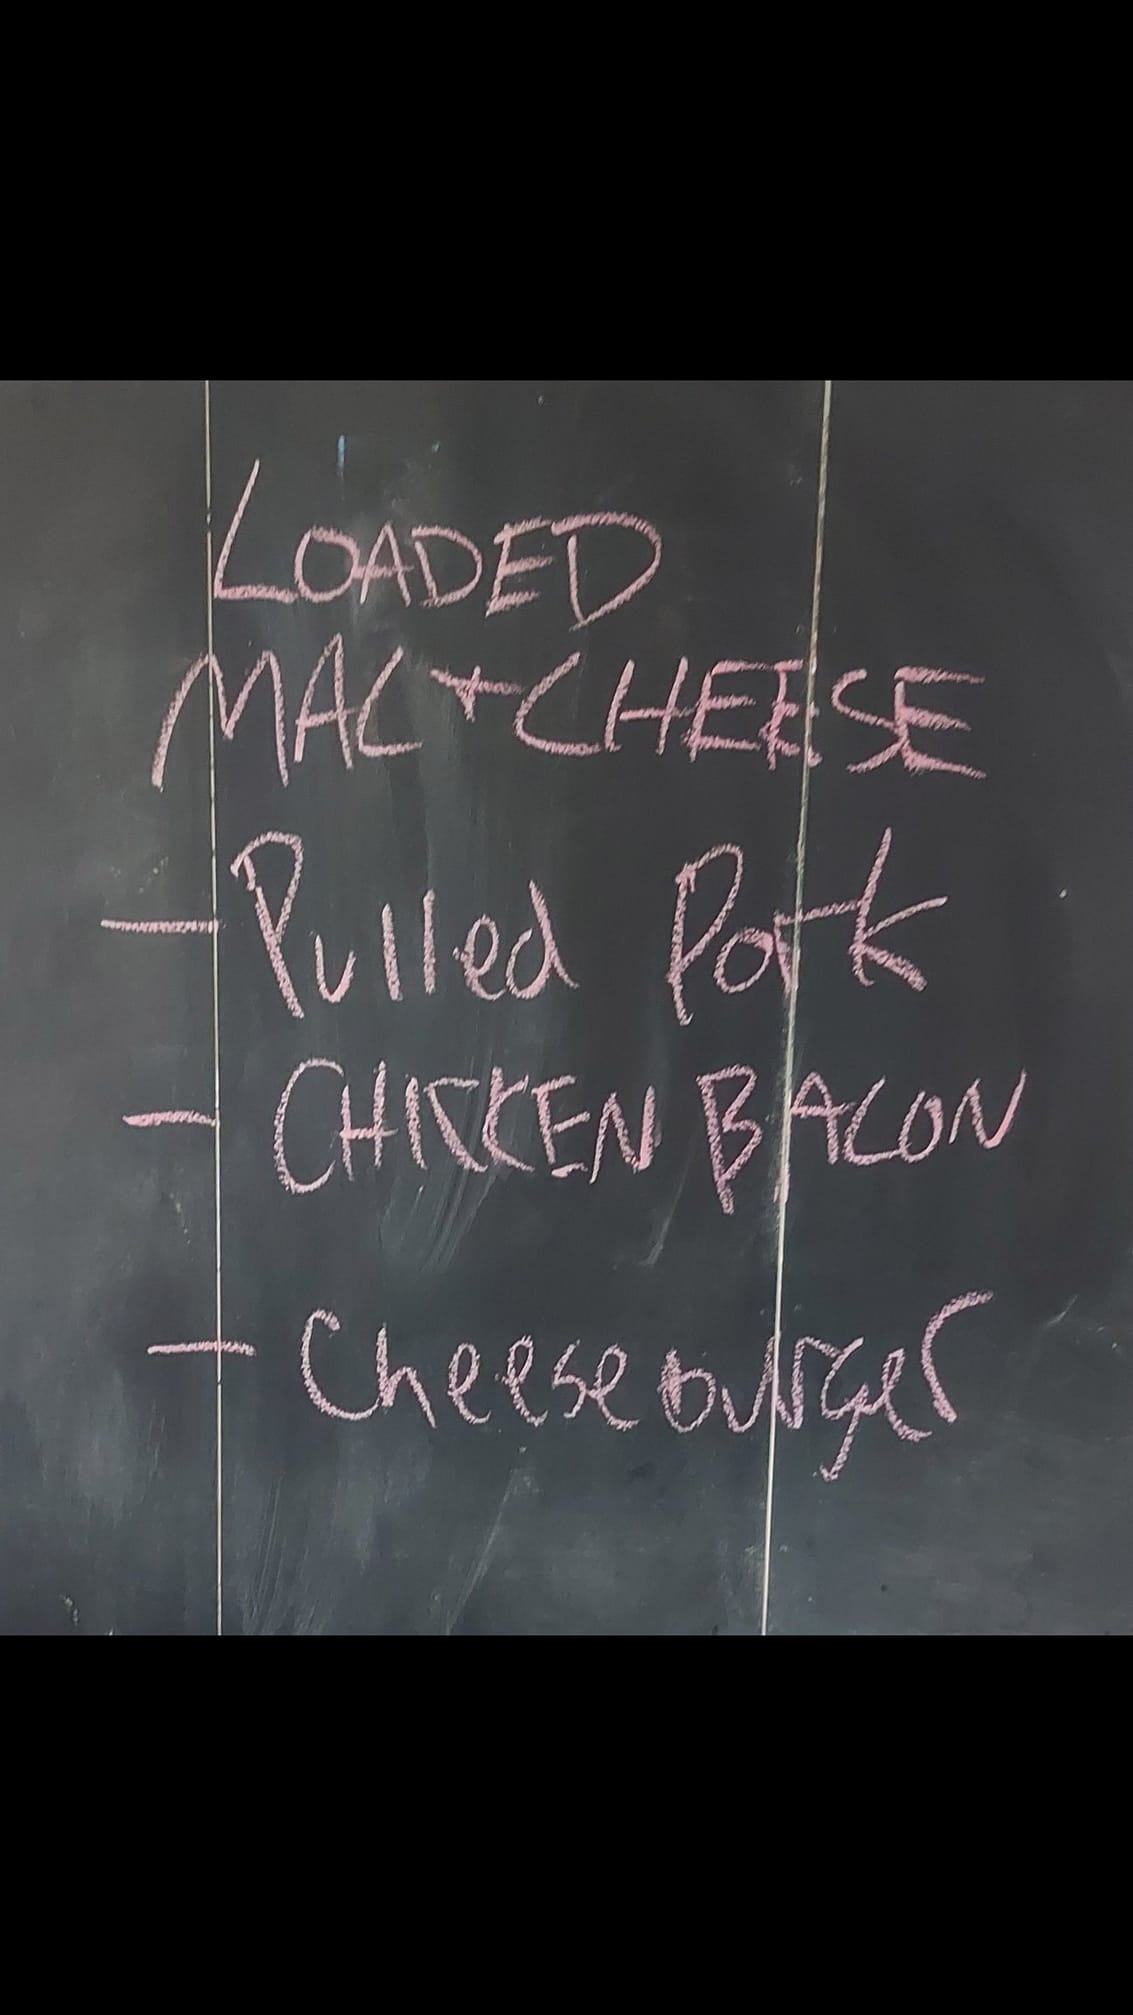 LOADED
MAC + CHEESE
- Pulled Pork
- CHICKEN BACON
- Cheeseburger